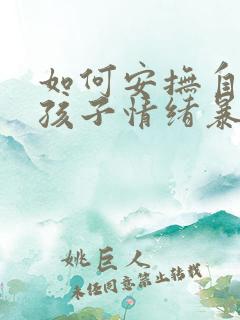 如何安抚自
孩子情绪暴
姚巨人
未经同意禁止转载